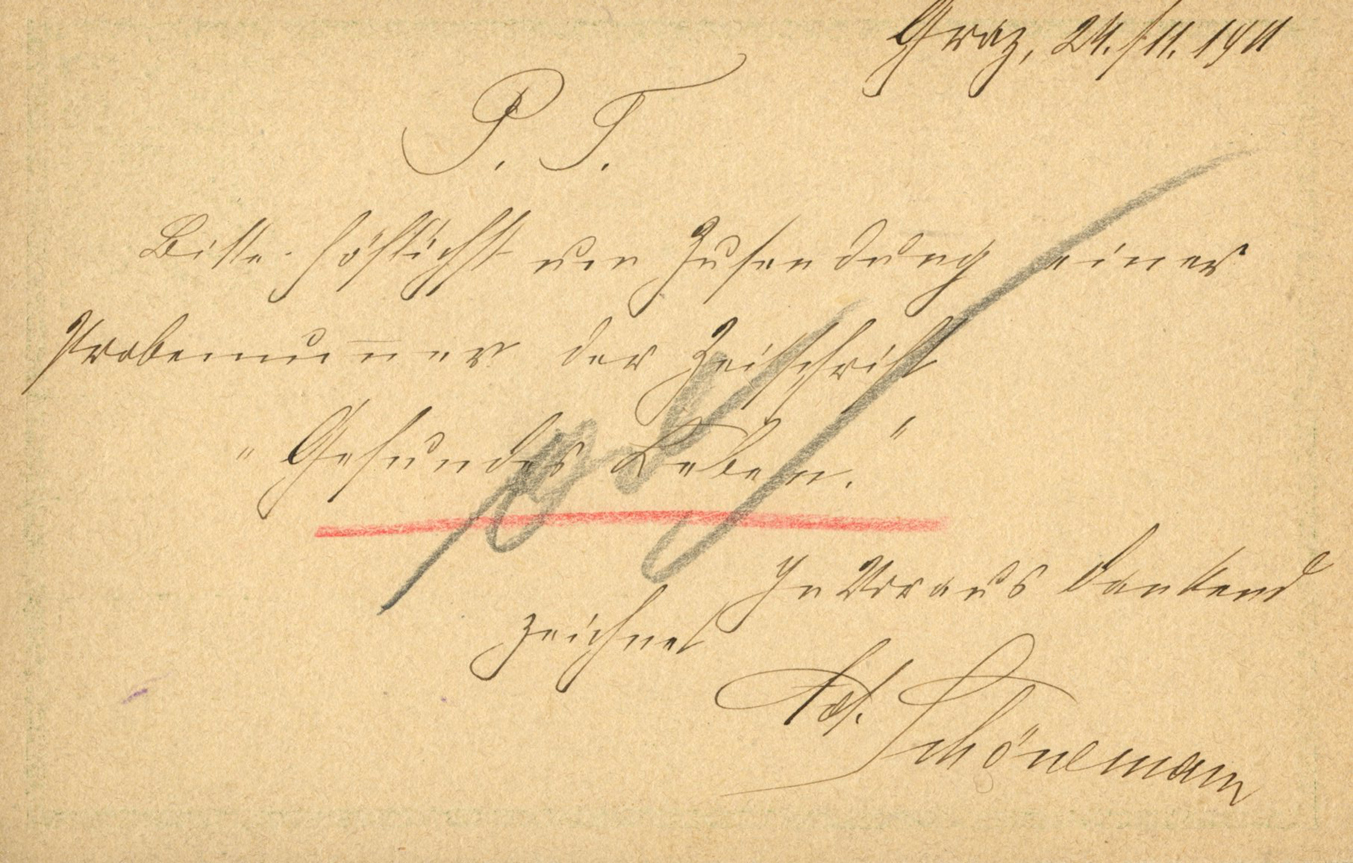 Graz, 24./11. 1911
P. T.
Bitte höflichst um Zusendung einer
Probenum̅er der Zeitschrift
„Gesundes Leben."
Im Voraus dankend
zeichnet
Schönemann